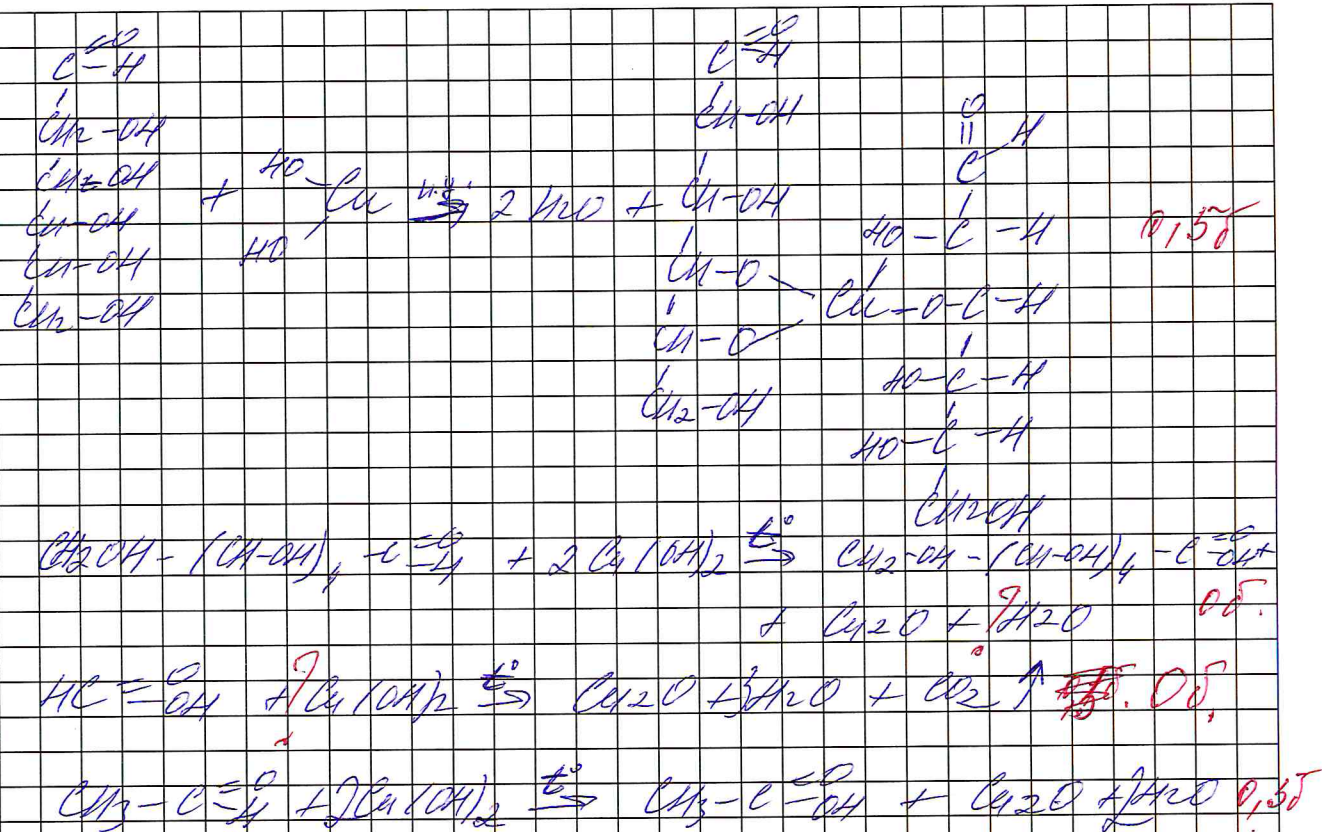 C =O –H
CH2–OH
CH–OH
CH–OH
CH–OH
CH2–OH
+ HO HO Cu н.у. → 2 H2O +
C =O –H
CH–OH
CH–OH
CH–O
CH–O
CH2–OH
O
||
C H
HO–C–H
Cu–O–C–H
HO–C–H
HO–C–H
CH2OH
0,5б
CH2OH–(CH–OH)4–C =O –H + 2Cu(OH)2 t° → CH2–OH–(CH–OH)4–C =O –OH +
+ Cu2O + ? H2O 0б.
HC =O –OH + ? Cu(OH)2 t° → Cu2O + 3H2O + CO2 ↑ 0б.
CH3–C =O –H + 2Cu(OH)2 t° → CH3–C =O –OH + Cu2O + 2H2O 0,5б